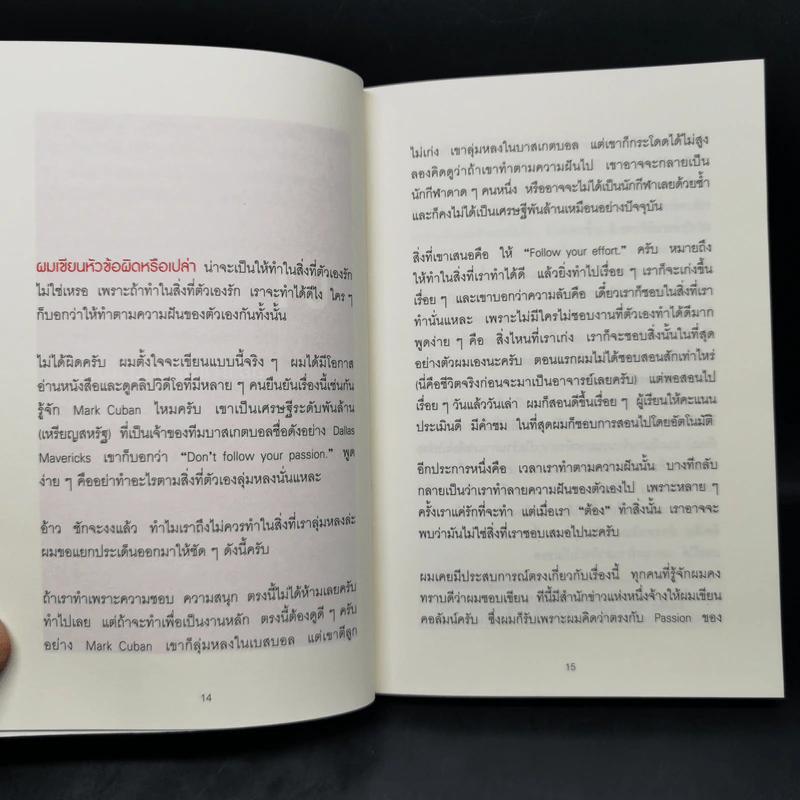 ผมเขียนหัวข้อผิดหรือเปล่า น่าจะเป็นให้ทำในสิ่งที่ตัวเองรัก
ไม่ใช่เหรอ เพราะถ้าทำในสิ่งที่ตัวเองรัก เราจะทำได้ดีไง ใคร ๆ
ก็บอกว่าให้ทำตามความฝันของตัวเองกันทั้งนั้น
ไม่ได้ผิดครับ ผมตั้งใจจะเขียนแบบนี้จริง ๆ ผมได้มีโอกาส
อ่านหนังสือและดูคลิปวิดีโอที่มีหลาย ๆ คนยืนยันเรื่องนี้เช่นกัน
รู้จัก Mark Cuban ไหมครับ เขาเป็นเศรษฐีระดับพันล้าน
(เหรียญสหรัฐ) ที่เป็นเจ้าของทีมบาสเกตบอลชื่อดังอย่าง Dallas
Mavericks เขาก็บอกว่า “Don't follow your passion.” พูด
ง่าย ๆ คืออย่าทำอะไรตามสิ่งที่ตัวเองลุ่มหลงนั่นแหละ
อ้าว ชักจะงงแล้ว ทำไมเราถึงไม่ควรทำในสิ่งที่เราลุ่มหลงล่ะ
ผมขอแยกประเด็นออกมาให้ชัด ๆ ดังนี้ครับ
ถ้าเราทำเพราะความชอบ ความสนุก ตรงนี้ไม่ได้ห้ามเลยครับ
ทำไปเลย แต่ถ้าจะทำเพื่อเป็นงานหลัก ตรงนี้ต้องดูดี ๆ ครับ
อย่าง Mark Cuban เขาก็ลุ่มหลงในเบสบอล แต่เขาตีลูก
14
ไม่เก่ง เขาลุ่มหลงในบาสเกตบอล แต่เขาก็กระโดดได้ไม่สูง
ลองคิดดูว่าถ้าเขาทำตามความฝันไป เขาอาจจะกลายเป็น
นักกีฬาดาด ๆ คนหนึ่ง หรืออาจจะไม่ได้เป็นนักกีฬาเลยด้วยซ้ำ
และก็คงไม่ได้เป็นเศรษฐีพันล้านเหมือนอย่างปัจจุบัน
สิ่งที่เขาเสนอคือ ให้ “Follow your effort.” ครับ หมายถึง
ให้ทำในสิ่งที่เราทำได้ดี แล้วยิ่งทำไปเรื่อย ๆ เราก็จะเก่งขึ้น
เรื่อย ๆ และเขาบอกว่าความลับคือ เดี๋ยวเราก็ชอบในสิ่งที่เรา
ทำนั่นแหละ เพราะไม่มีใครไม่ชอบงานที่ตัวเองทำได้ดีมาก
พูดง่าย ๆ คือ สิ่งไหนที่เราเก่ง เราก็จะชอบสิ่งนั้นในที่สุด
อย่างตัวผมเองนะครับ ตอนแรกผมไม่ได้ชอบสอนสักเท่าไหร่
(นี่คือชีวิตจริงก่อนจะมาเป็นอาจารย์เลยครับ) แต่พอสอนไป
เรื่อย ๆ วันแล้ววันเล่า ผมก็สอนดีขึ้นเรื่อย ๆ ผู้เรียนให้คะแนน
ประเมินดี มีคำชม ในที่สุดผมก็ชอบการสอนไปโดยอัตโนมัติ
อีกประการหนึ่งคือ เวลาเราทำตามความฝันนั้น บางทีกลับ
กลายเป็นว่าเราทำลายความฝันของตัวเองไป เพราะหลาย ๆ
ครั้งเราแค่รักที่จะทำ แต่เมื่อเรา “ต้อง” ทำสิ่งนั้น เราอาจจะ
พบว่ามันไม่ใช่สิ่งที่เราชอบเสมอไปนะครับ
ผมเคยมีประสบการณ์ตรงเกี่ยวกับเรื่องนี้ ทุกคนที่รู้จักผมคง
ทราบดีว่าผมชอบเขียน ทีนี้มีสำนักข่าวแห่งหนึ่งจ้างให้ผมเขียน
คอลัมน์ครับ ซึ่งผมก็รับเพราะผมคิดว่าตรงกับ Passion ของ
15